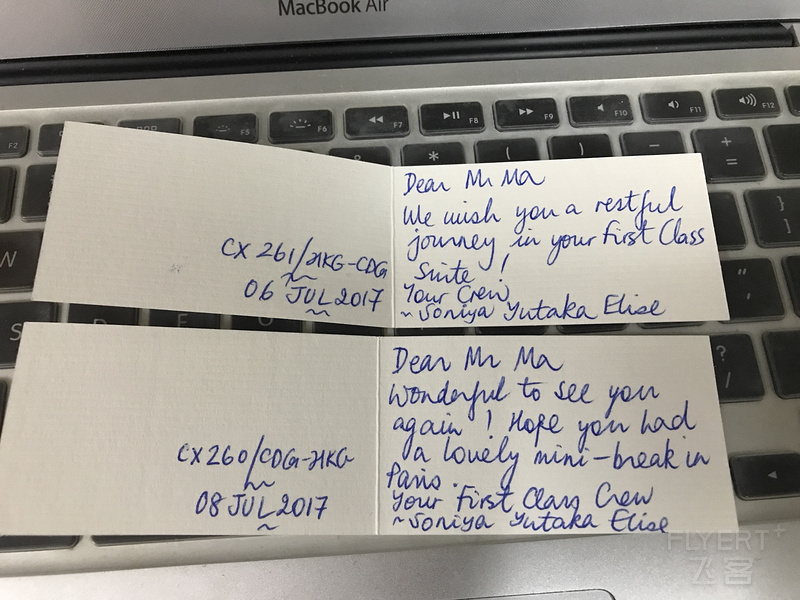 MacBook Air
F2
F5
F6
F7
F8
F9
F10
F11
F12
CX 261/HKG-CDG
06 JUL 2017
Dear Mr Ma
We wish you a restful
journey in your First Class
Suite!
Your Crew
~Soniya Yutaka Elise
CX260/CDG-HKG
08 JUL 2017
Dear Mr Ma
Wonderful to see you
again! Hope you had
a lovely mini-break in
Paris.
Your First Class Crew
~Soniya Yutaka Elise
W
S
FLYERT+
飞客